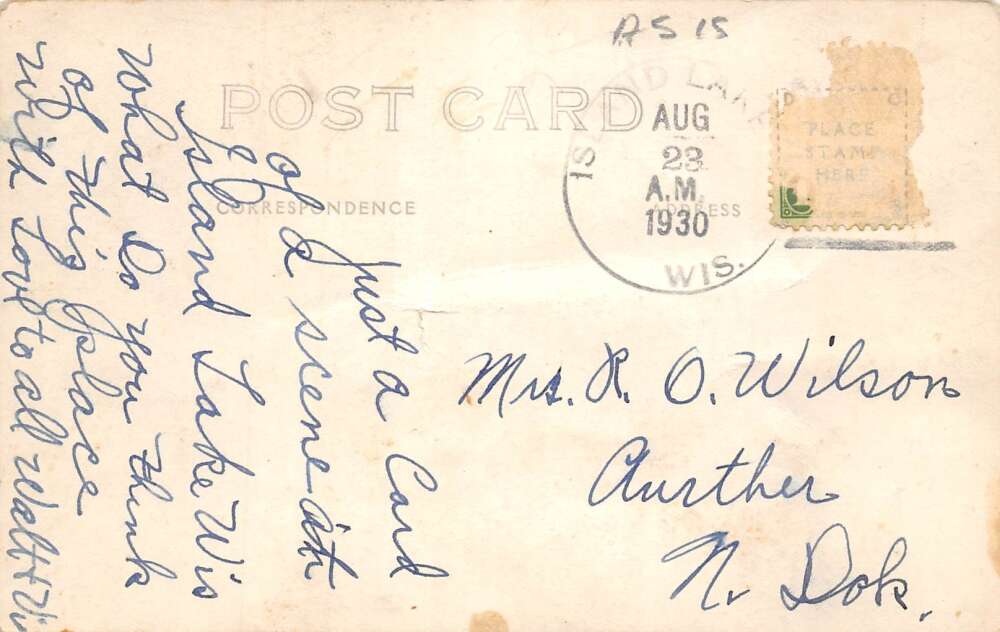 A S 15
POST CARD
ISLAND LAKE
AUG
23
A.M.
1930
WIS.
PLACE
STAMP
HERE
CORRESPONDENCE
ADDRESS
Just a Card
of a scene at
Island Lake Wis
What do you think
of this place
with Love to all Walt + Vi
Mrs. R. O. Wilson
Aurther
N. Dok.